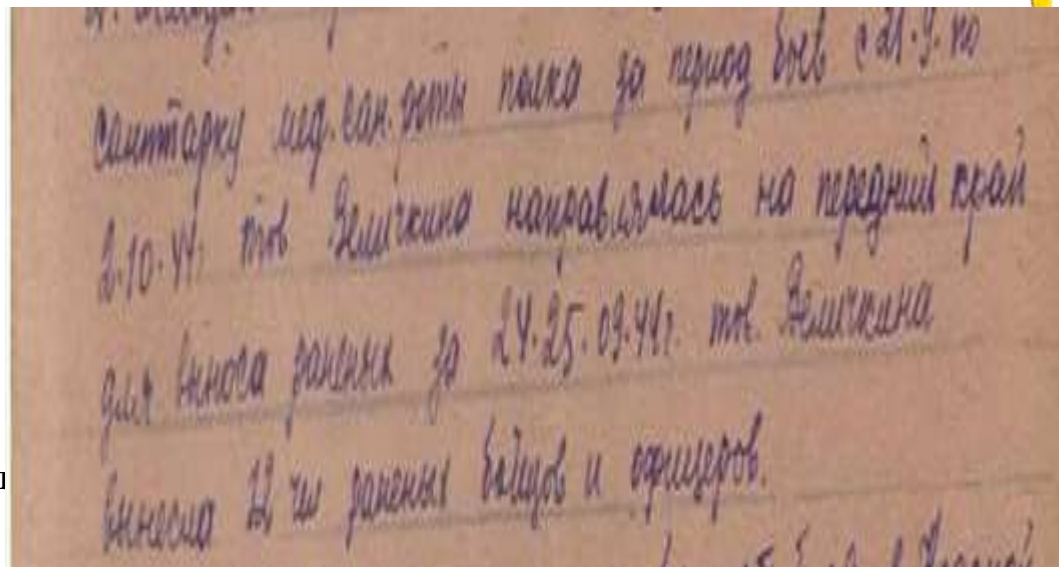 санитарку мед. сан. роты полка за период боев с 21.9. по
2.10.44г тов Величкина направлялась на передний край
для выноса раненых за 24.25.09.44г. тов. Величкина
вынесла 22 чел раненых бойцов и офицеров.
в Красной